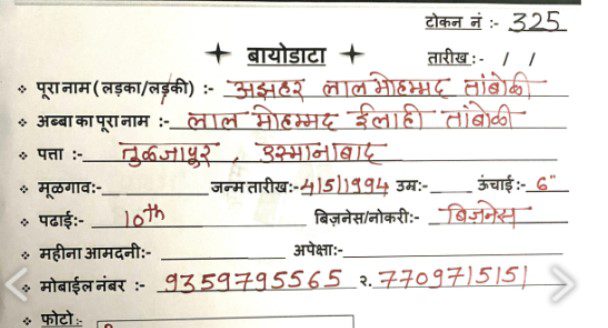 टोकन नं :- 325
बायोडाटा
तारीख :- / /
पूरा नाम (लड़का/लड़की) :- अझहर लाल मोहम्मद तांबोळी
अब्बा का पूरा नाम :- लाल मोहम्मद ईलाही तांबोळी
पत्ता :- तुळजापूर, उस्मानाबाद
मूळगाव:- जन्म तारीख:- 4/5/1994 उम्र:- ऊंचाई:- 6"
पढाई:- 10th बिज़नेस/नोकरी:- बिजनेस
महीना आमदनी:- अपेक्षा:-
मोबाईल नंबर :- 9359795565 २. 7709715151
फोटो:-